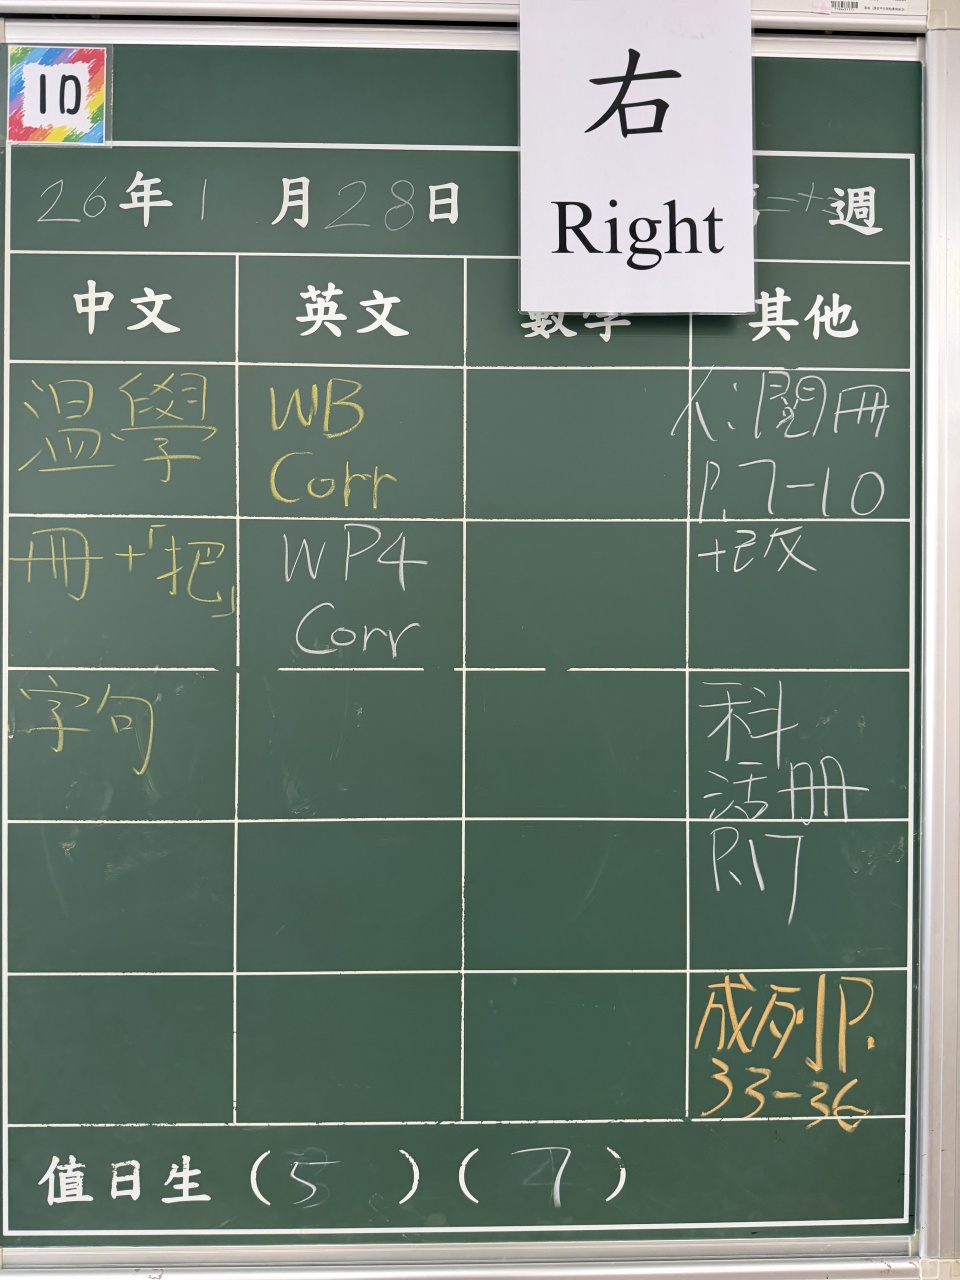 1D
右
Right
26年1月28日
二十週
中文 英文 數學 其他
溫學
冊+「把」
字句
WB
Corr
WP4
Corr
人:閱冊
P.7-10
+改
科
活冊
P.17
成列P.
33-36
值日生(5)(7)